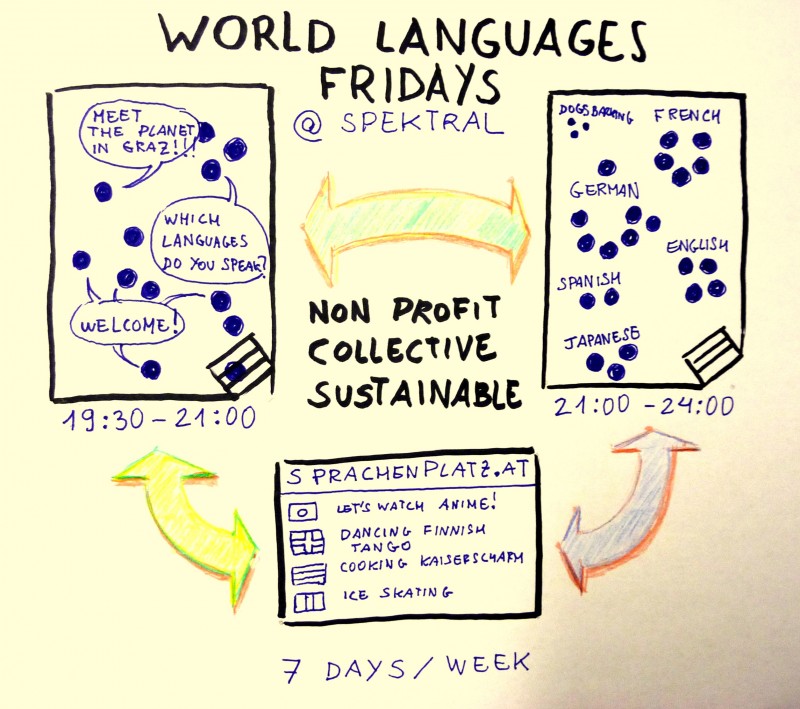 WORLD LANGUAGES
FRIDAYS
@ SPEKTRAL
MEET
THE PLANET
IN GRAZ!!!
WHICH
LANGUAGES
DO YOU SPEAK?
WELCOME!
19:30-21:00
NON PROFIT
COLLECTIVE
SUSTAINABLE
DOGS BARKING
FRENCH
GERMAN
ENGLISH
SPANISH
JAPANESE
21:00-24:00
SPRACHENPLATZ.AT
LET'S WATCH ANIME!
DANCING FINNISH
TANGO
COOKING KAISERSCHARM
ICE SKATING
7 DAYS/WEEK